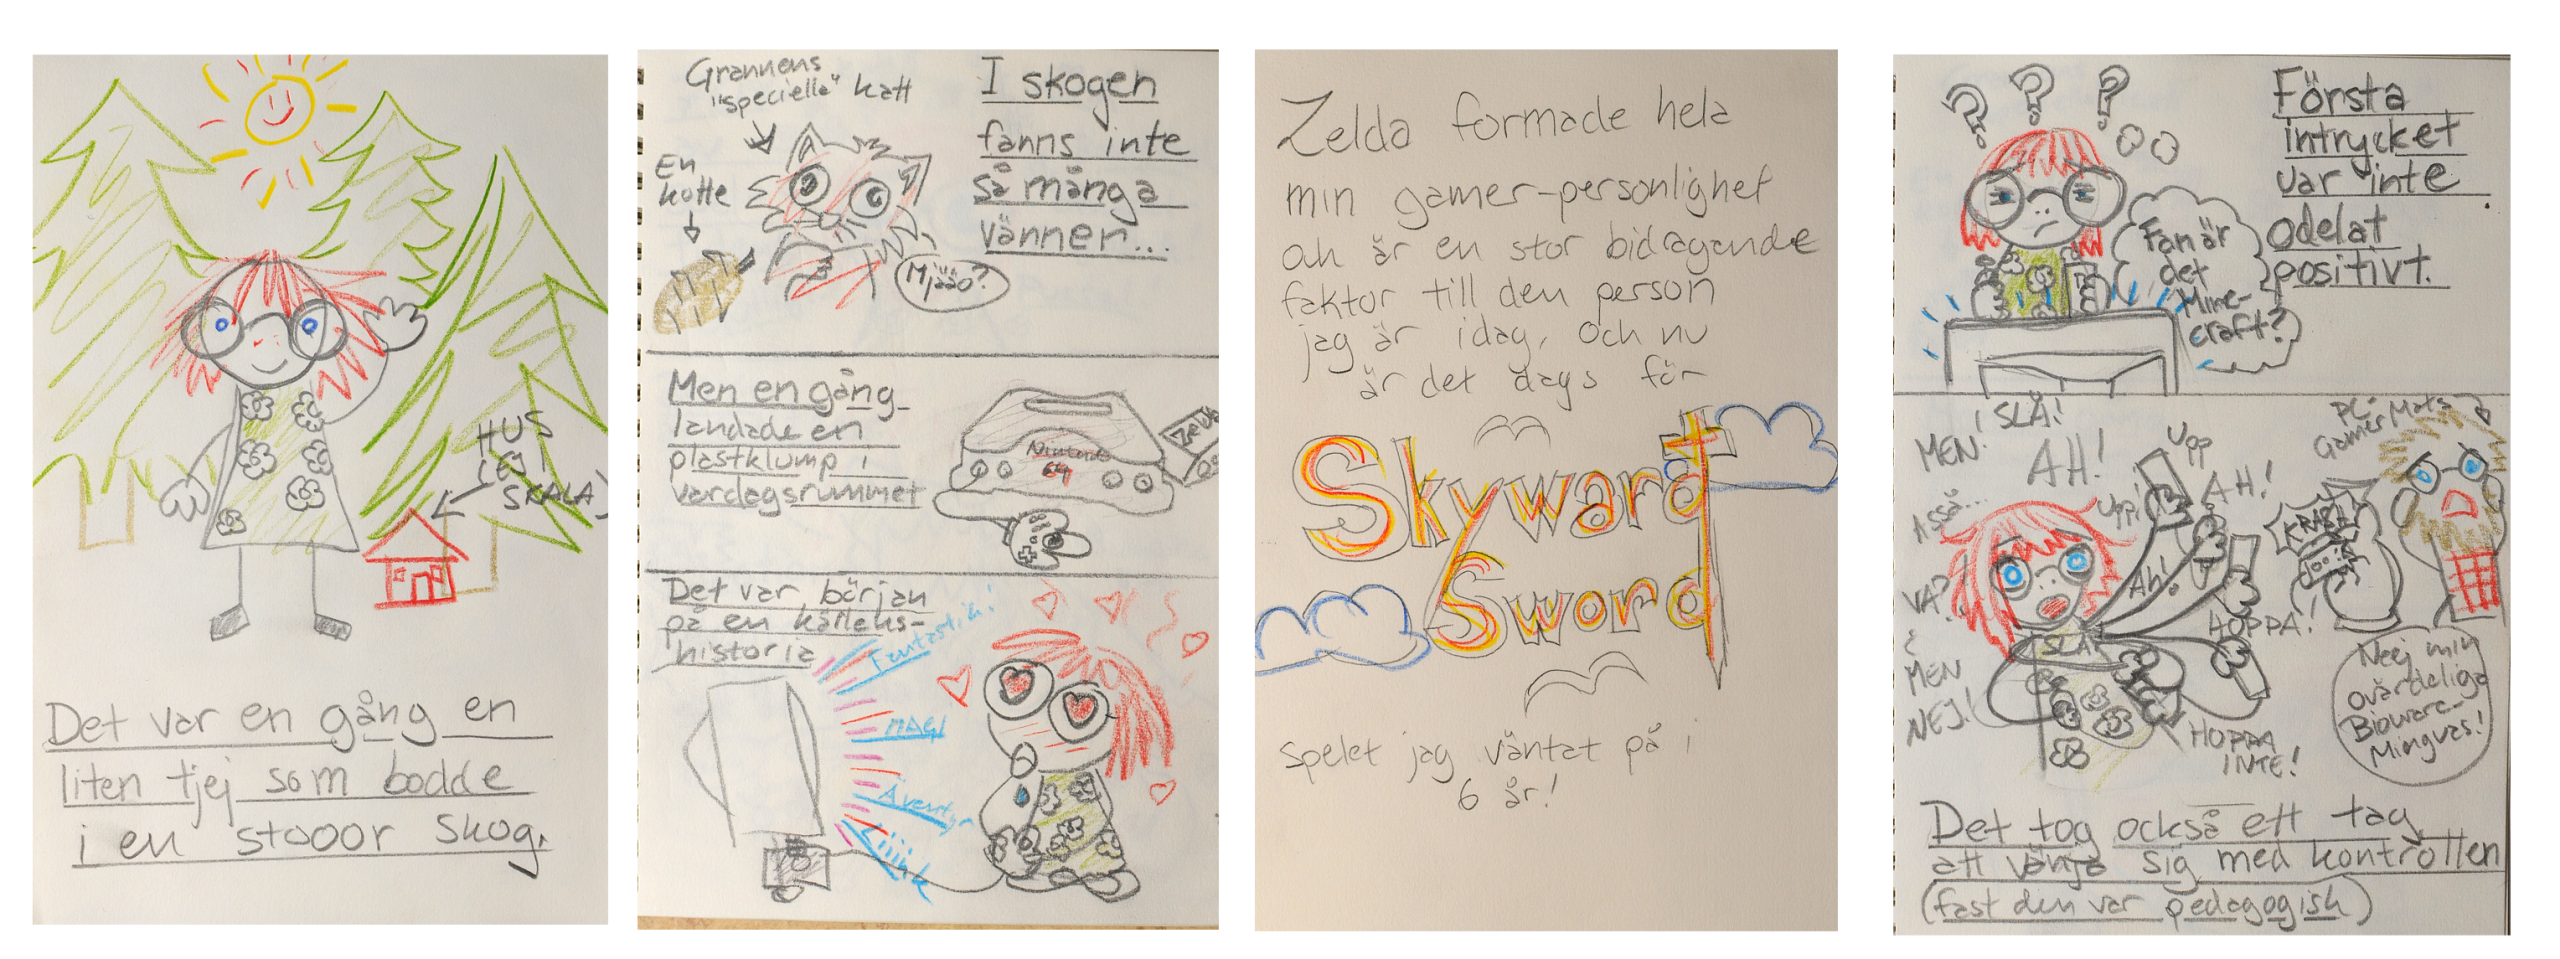 HUS
(EJ I
SKALA)
Det var en gång en
liten tjej som bodde
i en stooor skog.
Grannens
"speciella" katt
En
kotte
Mjäão?
I skogen
fanns inte
så många
vänner...
Men en gång
landade en
plastklump i
vardagsrummet
Nintendo
64
Det var början
på en kärleks-
historia
Fantastisk!
MAGI
Äventyr
Liiink
Zelda formade hela
min gamer-personlighet
och är en stor bidragande
faktor till den person
jag är idag, och nu
är det dags för
Skyward
Sword
Spelet jag väntat på i
6 år!
? ? ?
Första
intrycket
var inte
odelat
positivt.
Fan är
det
Mine-
craft?
MEN!
SLÅ!
AH!
Upp
Upp!
AH!
PC-
GamerMats
Asså...
Ah!
KRASH
VA?
HOPPA!
SLÅ!
MEN
NEJ!
HOPPA
INTE!
Neej min
ovärdeliga
Bioware-
Mingvas!
Det tog också ett tag
att vänja sig med kontrollen
(fast den var pedagogisk)